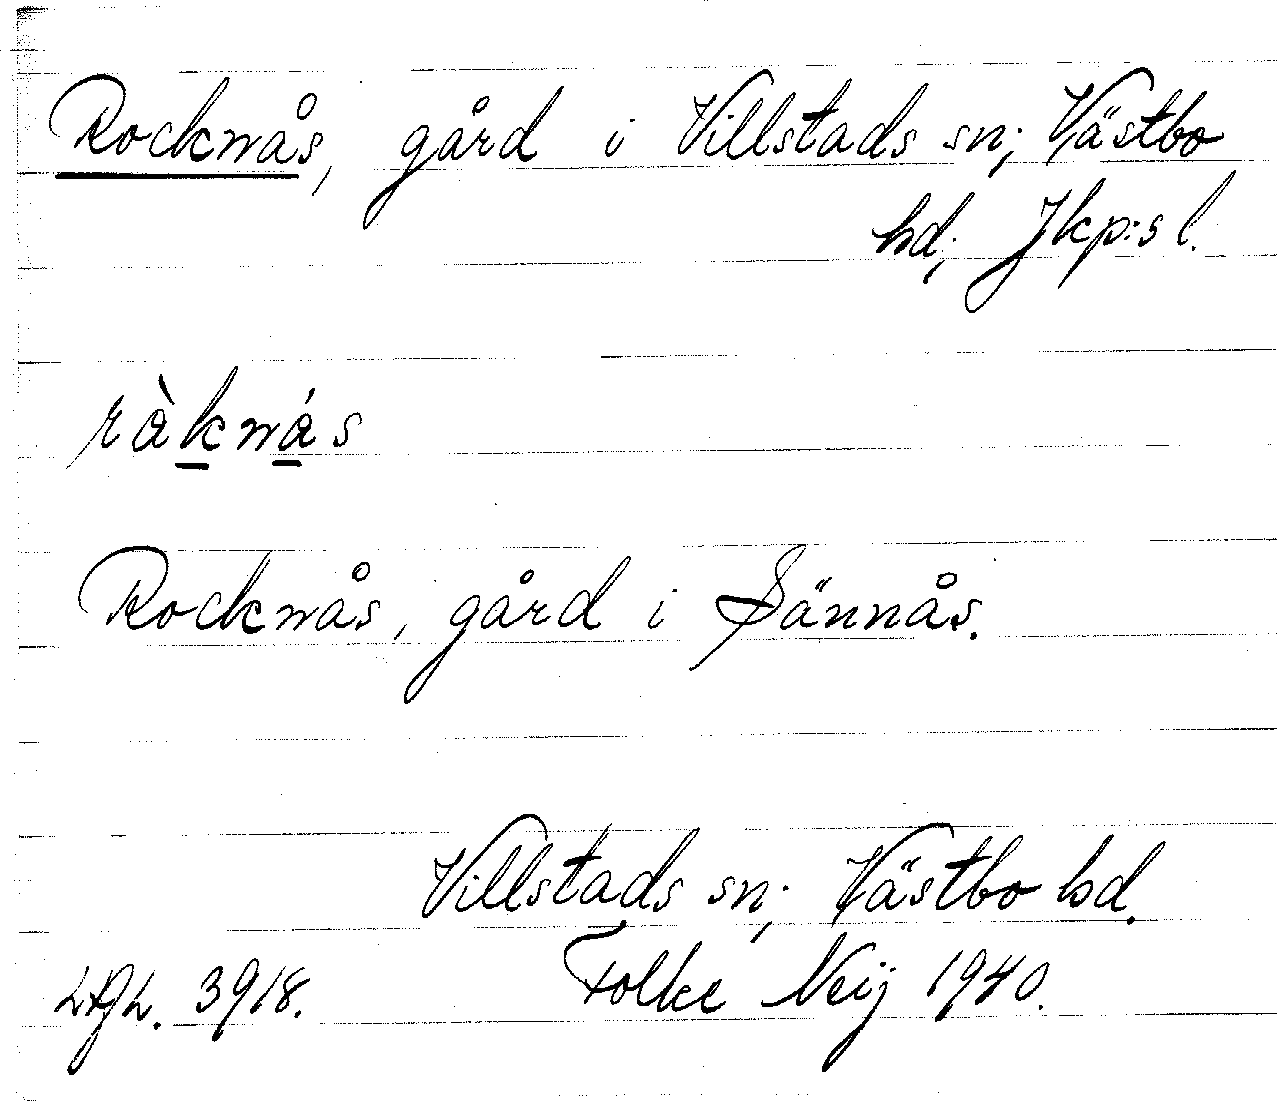 Rocknås, gård i Villstads sn; Västbo
hd; Jkp:s l.
ràknás
Rocknås, gård i Sännås.
Villstads sn; Västbo hd.
LAL. 3918. Folke Neij 1940.